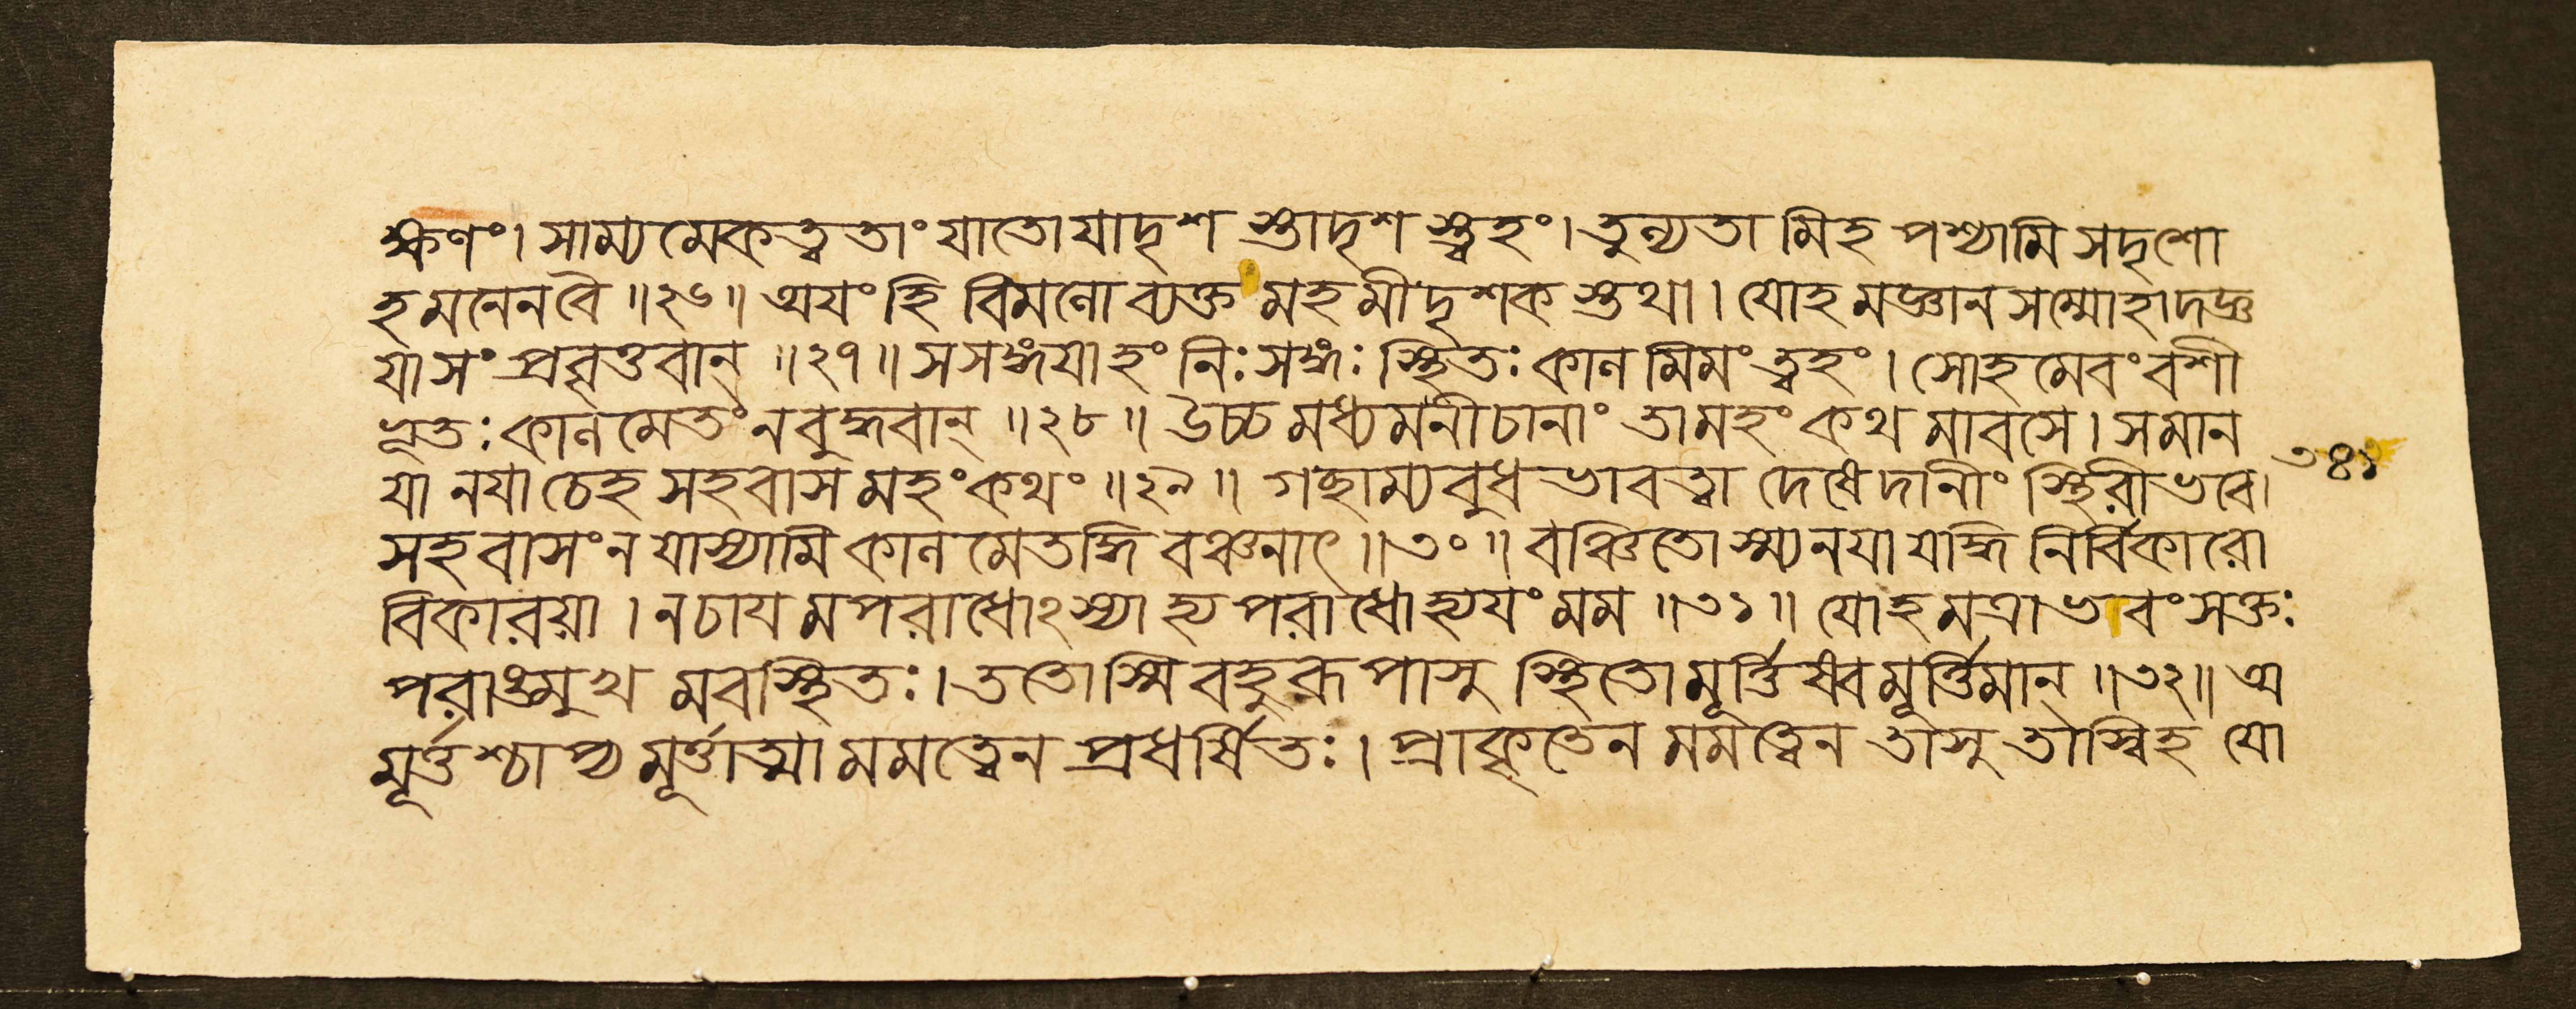 ক্ষণং। সাম্যমেকত্বতাং যাতো যাদৃশ স্তাদৃশ স্ত্বহং। তুল্যতা মিহ পশ্যামি সদৃশো
হমনেনবৈ ॥২৬॥ অযং হি বিমলো ব্যক্ত মহমীদৃশক স্তথা। যোহমজ্ঞান সম্মোহাদজ্ঞ
যা সং প্রবৃত্তবান্ ॥২৭॥ সসঙ্গযাহং নিঃসঙ্গঃ স্থিতঃ কালমিমং ত্বহং। সোহমেবং বশী
ভূতঃ কালমেতং নবুদ্ধবান্ ॥২৮॥ উচ্চমধ্যমনীচানাং তামহং কথমাবসে। সমান
যানযাচেহ সহবাস মহং কথং ॥২৯॥ গচ্ছাম্যবুধ ভাবত্বা দেষেদানীং স্থিরীভবে।
সহবাসং ন যাস্যামি কালমেতদ্ধি বঞ্চনাৎ ॥৩০॥ বঞ্চিতোস্ম্যনযা যদ্ধি নির্বিকারো
বিকারয়া। নচায মপরাধোঽস্যা হ্যপরাধোহ্যযং মম ॥৩১॥ যোহমত্রাভবং সক্তঃ
পরাঙমুখ মবস্থিতঃ। ততোস্মি বহুরূপাসু স্থিতো মূর্ত্তিষ্বমূর্ত্তিমান্ ॥৩২॥ অ
মূর্ত্তশ্চাপ্য মূর্ত্তাত্মা মমত্বেন প্রধর্ষিতঃ। প্রাকৃতেন মমত্বেন তাসু তাস্বিহ যো
৩৪১